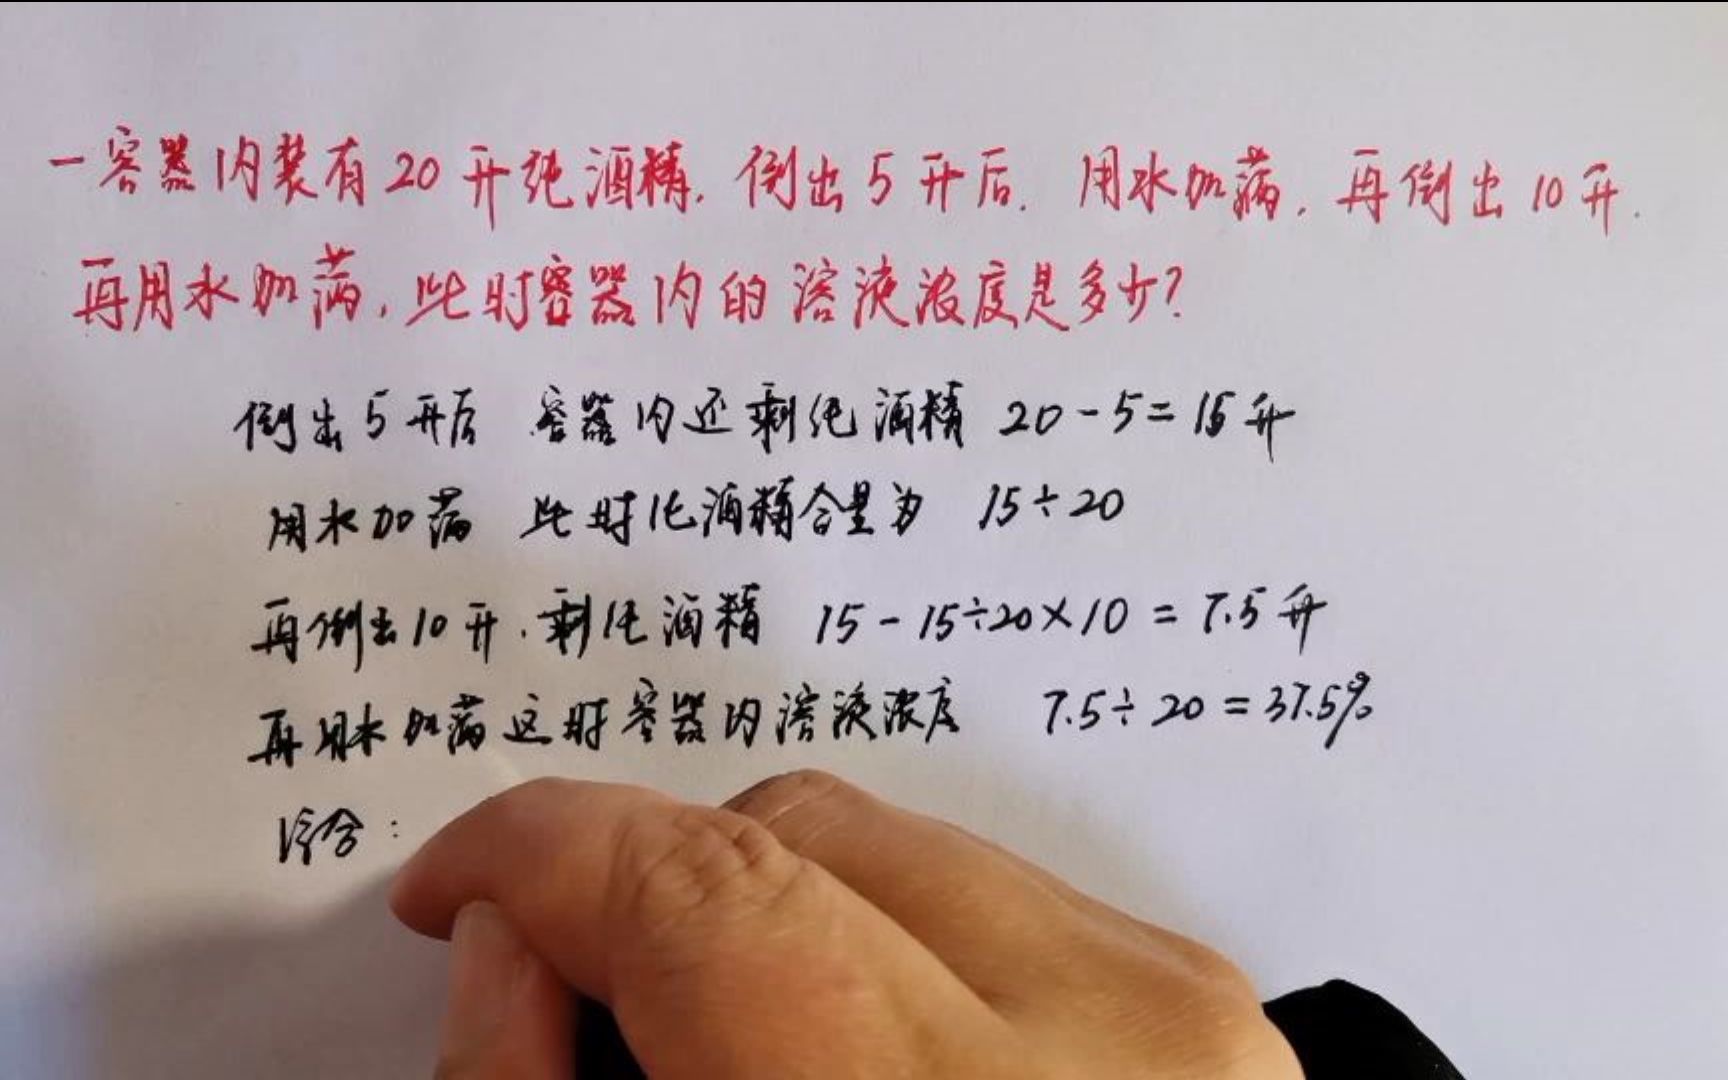 一容器内装有20升纯酒精.倒出5升后.用水加满.再倒出10升.
再用水加满,此时容器内的溶液浓度是多少?
倒出5升后 容器内还剩纯酒精 20-5=15升
用水加满 此时纯酒精含量为 15÷20
再倒出10升.剩纯酒精 15-15÷20×10=7.5升
再用水加满这时容器内溶液浓度 7.5÷20=37.5%
综合: